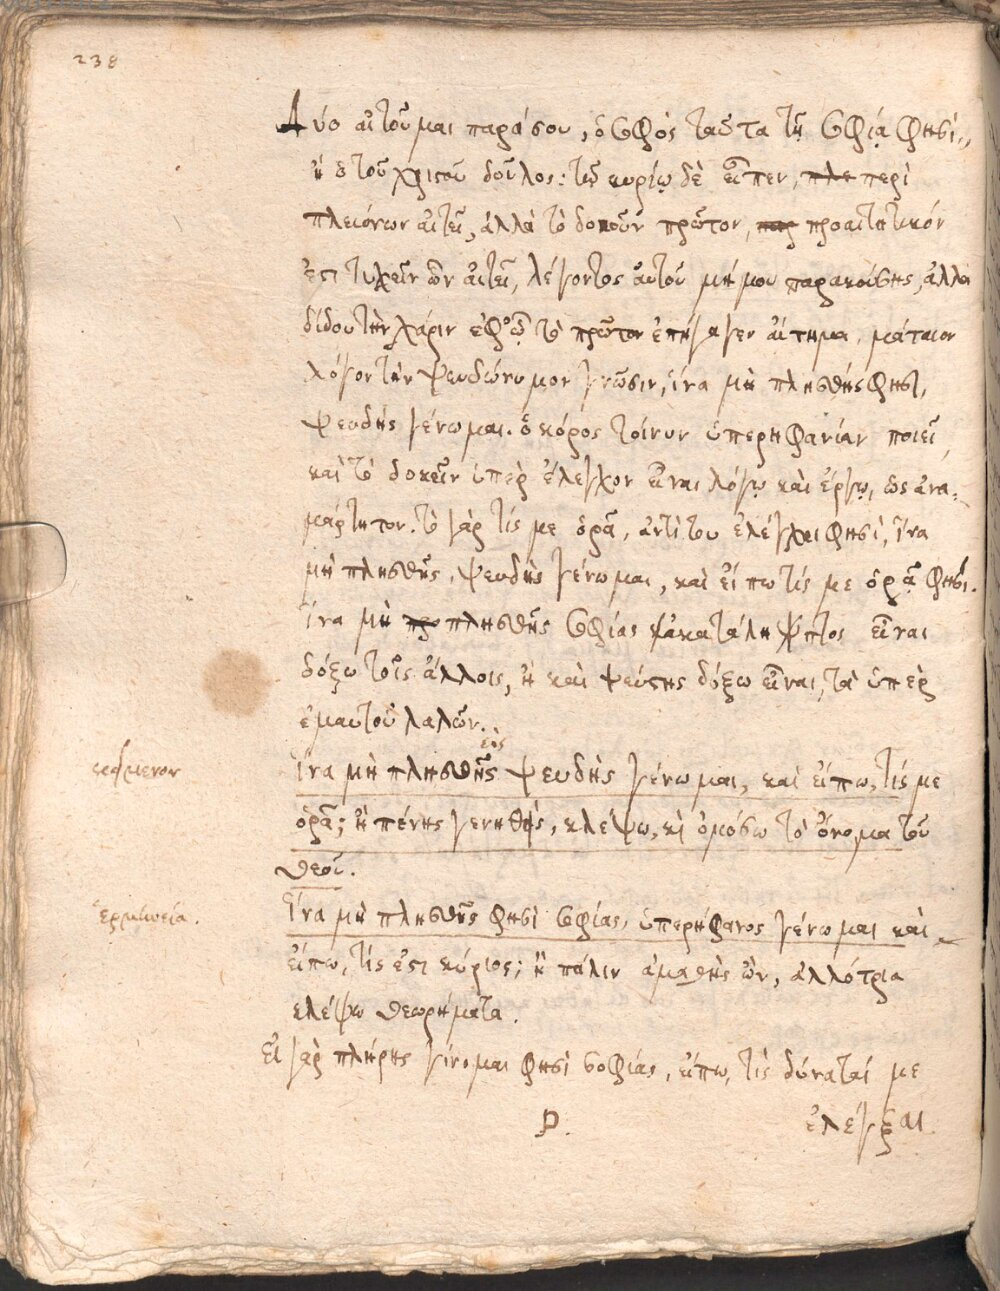 238
Δύο αἰτοῦμαι παρά σου, ὁ σοφὸς ταῦτα τῇ σοφίᾳ φησὶ,,
ἢ ὁ τοῦ χριστοῦ δοῦλος: τῷ κυρίῳ δὲ εἶπεν, πλε περὶ
πλειόνων αἰτεῖ, ἀλλὰ τὸ δοκοῦν πρῶτον, προαιτητικόν
ἐστι τυχεῖν ὧν αἰτεῖ, λέγοντος αὐτοῦ μή μου παρακούσης, ἀλλὰ
δίδου τὴν χάριν ἐφ' ᾧ τὸ πρῶτον ἐπήγαγεν αἴτημα, μάταιον
λόγον τὴν ψευδώνυμον γνῶσιν, ἵνα μὴ πλησθῇς φησὶ,
ψευδὴς γένωμαι. ὁ κόρος τοίνυν ὑπερηφανίαν ποιεῖ,
καὶ τὸ δοκεῖν ὑπὲρ ἔλεγχον εἶναι λόγῳ καὶ ἔργῳ, ὡς ἀνα-
μάρτητον. τὸ γάρ τίς με ὁρᾷ, ἀντὶ του ἐλέγχει φησὶ, ἵνα
μὴ πλησθῇς, ψευδὴς γένωμαι, καὶ εἴπω τίς με ὁρᾷ φησὶ.
ἵνα μὴ πλησθῇς σοφίας ἀκατάληπτος εἶναι
δόξω τοῖς ἄλλοις, ἢ καὶ ψεύστης δόξω εἶναι, τὰ ὑπὲρ
ἐμαυτοῦ λαλῶν.
κείμενον
ἵνα μὴ πλησθεὶς ψευδὴς γένωμαι, καὶ εἴπω, τίς με
ὁρᾷ; ἢ πένης γενηθείς, κλέψω, κὶ ὀμόσω τὸ ὄνομα τοῦ
θεοῦ.
ἑρμηνεία.
Ἵνα μὴ πλησθῇς φησὶ σοφίας, ὑπερήφανος γένωμαι καὶ
εἴπω, τίς ἐστι κύριος; ἢ πάλιν ἀμαθὴς ὢν, ἀλλότρια
κλέψω θεωρήματα.
Εἰ γὰρ πλήρης γίνομαι φησὶ σοφίας, εἴπω, τίς δύναταί με
ἐλέγξαι